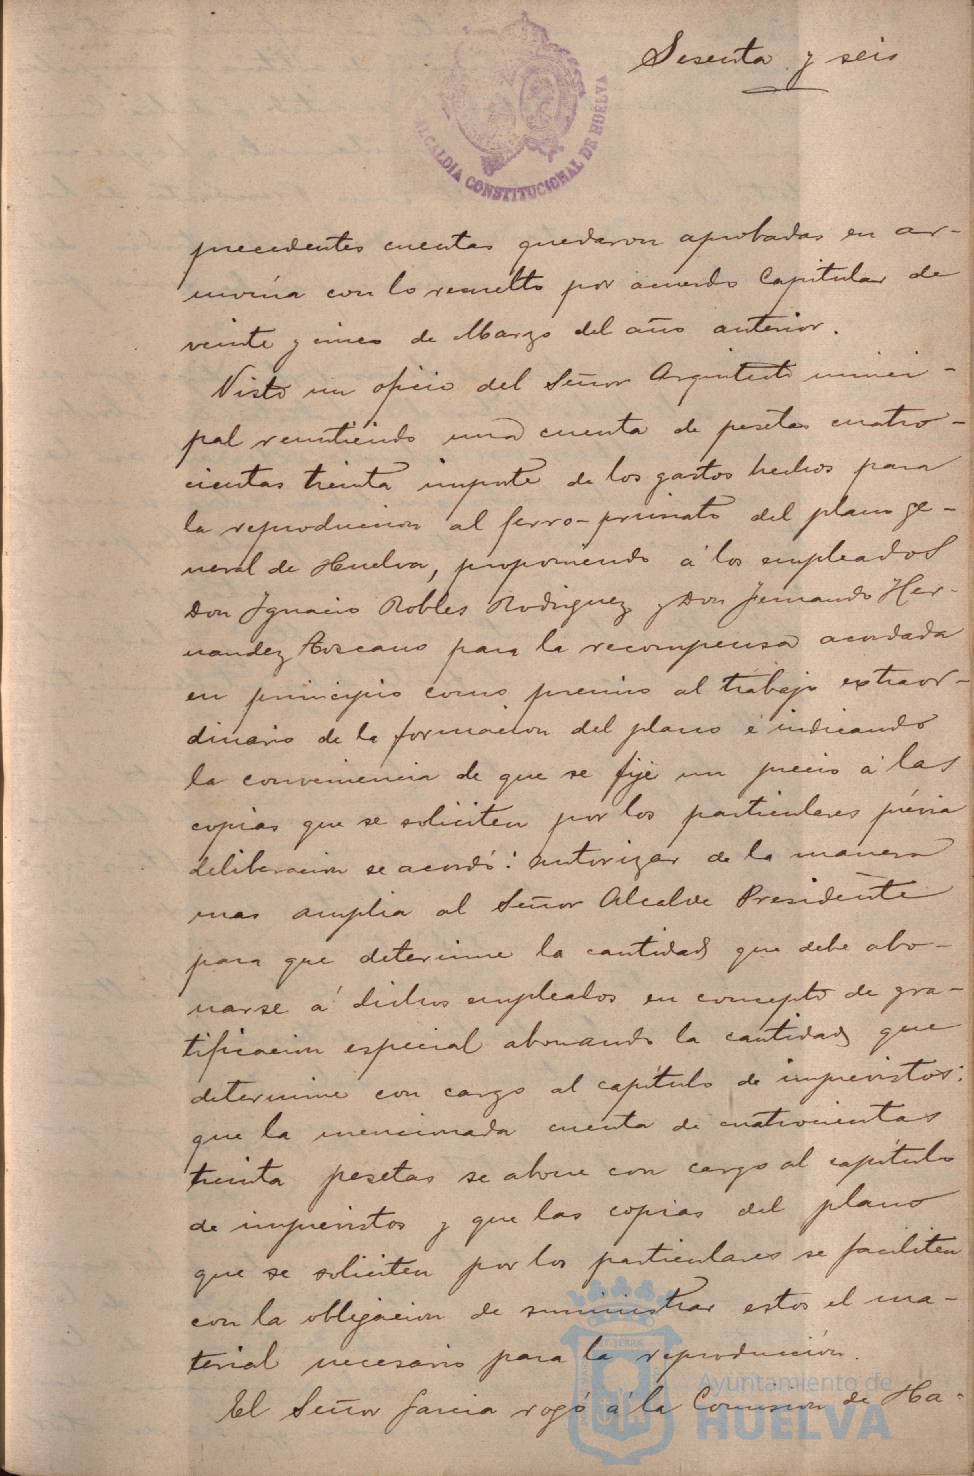 Sesenta y seis
ALCALDIA CONSTITUCIONAL DE HUELVA
precedentes cuentas quedaron aprobadas en ar-
monía con lo resuelto por acuerdo Capitular de
veinte y cinco de Marzo del año anterior.
Visto un oficio del Señor Arquitecto munici-
pal remitiendo una cuenta de pesetas cuatro-
cientas treinta importe de los gastos hechos para
la reproduccion al ferro-prusiato del plano ge-
neral de Huelva, proponiendo á los empleados
Don Ignacio Robles Rodriguez y Don Fernando Her-
nandez para la recompensa acordada
en principio como premio al trabajo extraor-
dinario de la formacion del plano é indicando
la conveniencia de que se fije un precio á las
copias que se soliciten por los particulares prévia
deliberacion se acordó: autorizar de la manera
mas amplia al Señor Alcalde Presidente
para que determine la cantidad que debe abo-
narse á dichos empleados en concepto de gra-
tificacion especial abonando la cantidad que
determine con cargo al capítulo de imprevistos:
que la mencionada cuenta de cuatrocientas
treinta pesetas se abone con cargo al capítulo
de imprevistos y que las copias del plano
que se soliciten por los particulares se faciliten
con la obligacion de suministrar estos el ma-
terial necesario para la reproducción.
El Señor Garcia rogó á la Comision de Ha-
Ayuntamiento de
HUELVA